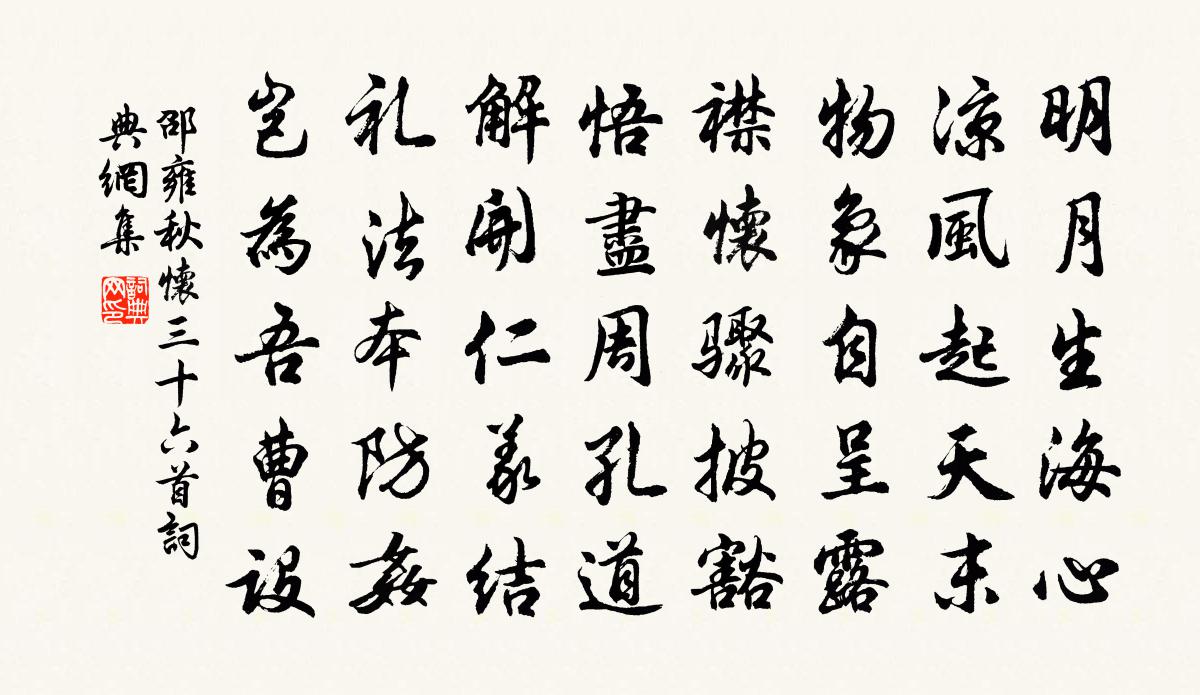 明月生海心
涼風起天末
物象自呈露
襟懷驟披豁
悟盡周孔道
解開仁義結
礼法本防姦
豈為吾曹設
邵雍秋懷三十六首詞
典網集
詞典網印